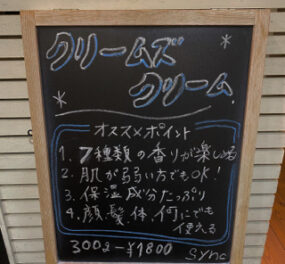 クリームズ
クリーム
オススメポイント
1. 7種類の香りが楽しめる
2. 肌が弱い方でもOK!
3. 保湿成分たっぷり
4. 顔、髪、体、何にでも
使える
300g-¥1800
sync